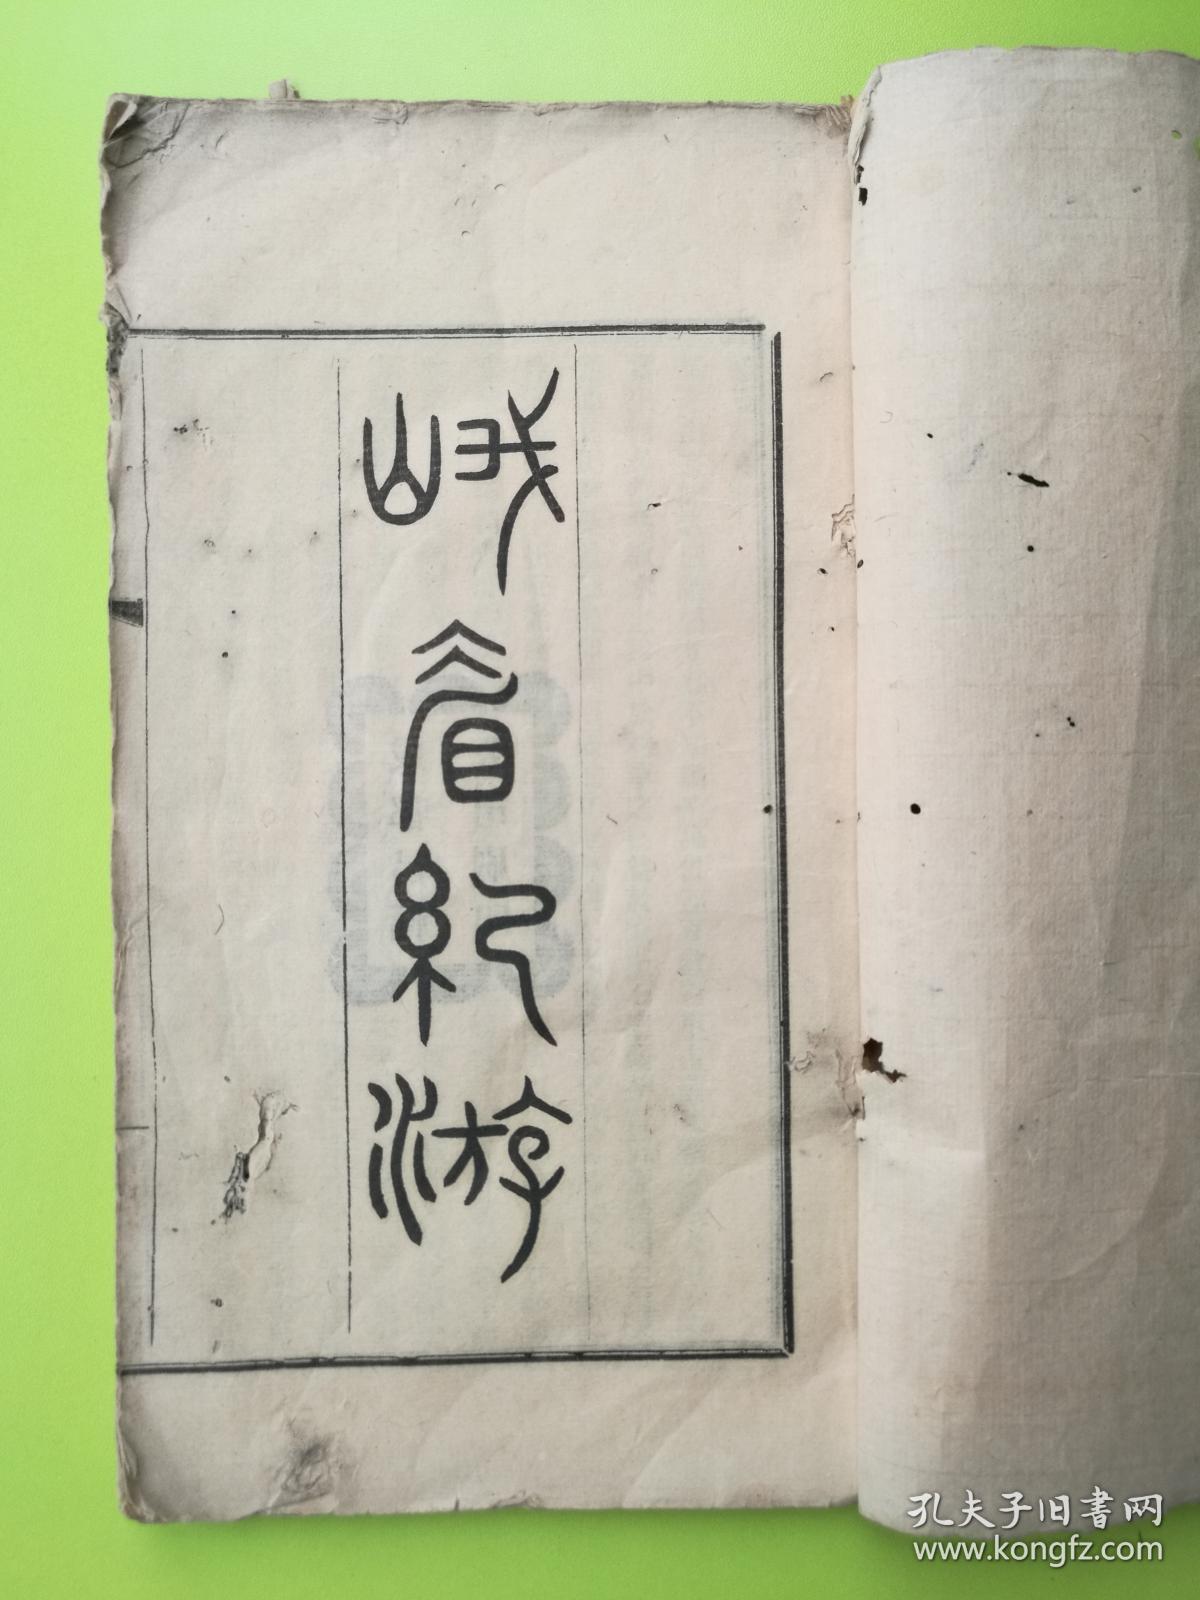 峨眉紀游
孔夫子旧書网
www.kongfz.com